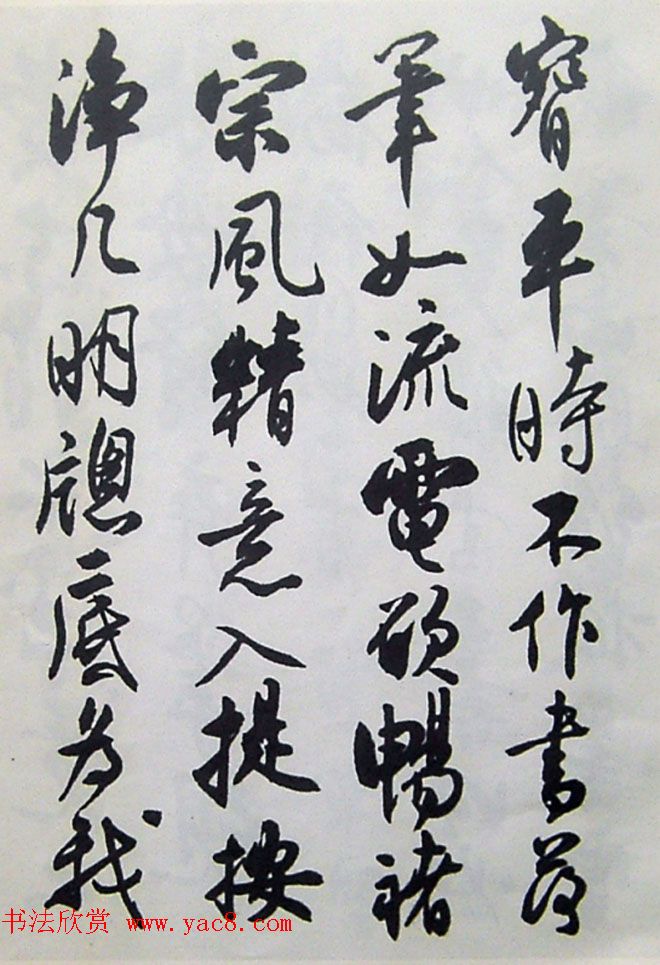 平時不作書落
筆如流電頗暢褚
宗風精意入提按
淨几明牕底為我
书法欣赏 www.yac8.com